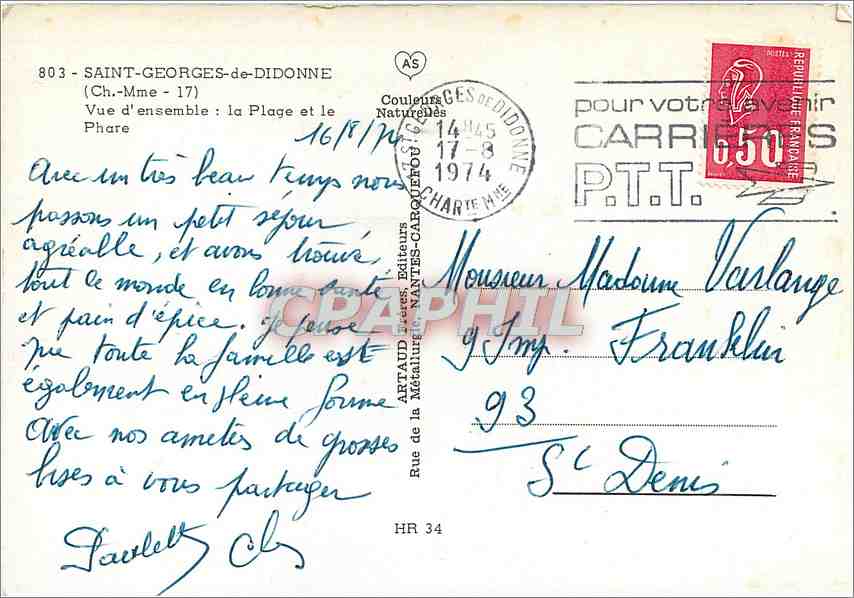 803 - SAINT-GEORGES-de-DIDONNE
(Ch.-Mme - 17)
Vue d'ensemble : la Plage et le
Phare
AS
Couleurs
Naturelles
16/8/74
Avec un très beau temps nous
passons un petit séjour
agréable, et avons trouvé,
tout le monde en bonne santé
et pain d'épice. Je pense
que toute la famille est
également en pleine forme
Avec nos amitiés de grosses
bises à vous partager
ARTAUD Frères, Editeurs
Rue de la Métallurgie, NANTES-CARQUEFOU
HR 34
17 ST GEORGES DE DIDONNE
14H45
17-8
1974
CHARTE MME
pour votre avenir
CARRIÈRES
P.T.T.
POSTES
REPUBLIQUE FRANÇAISE
0,50
Monsieur Madame Varlange
9 Imp. Franklin
93
St Denis
CPAPHIL